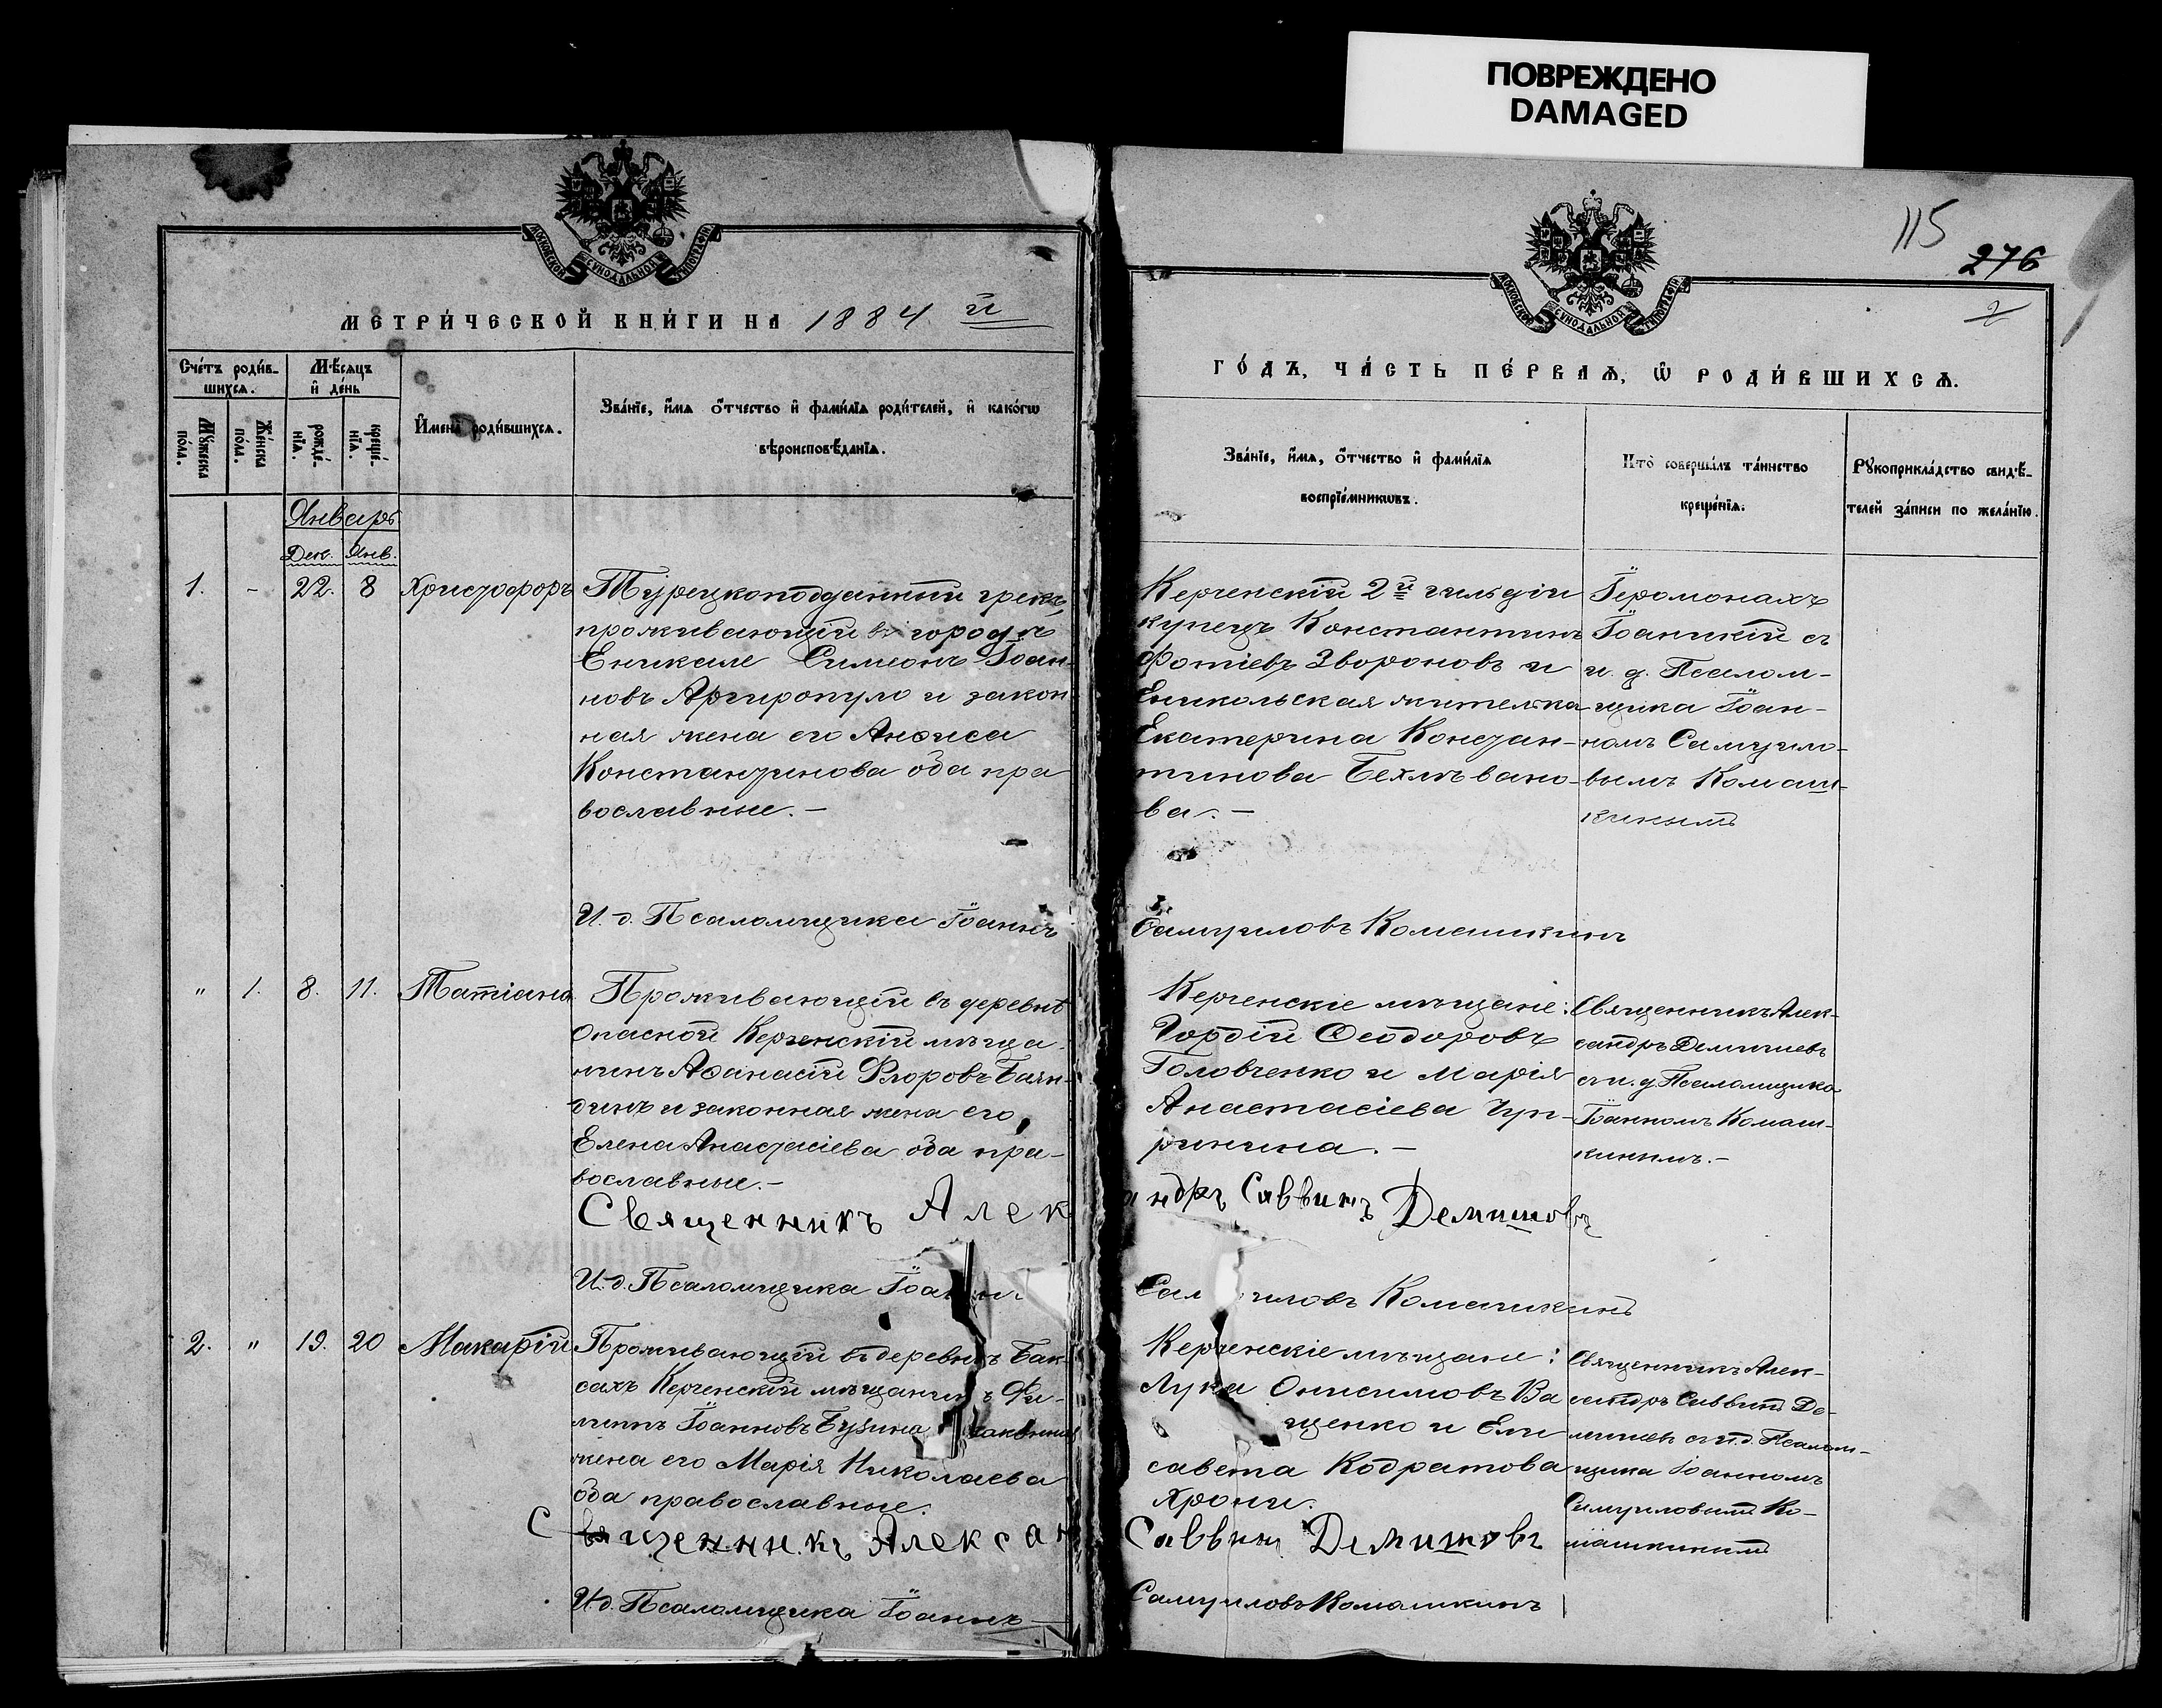 ПОВРЕЖДЕНО
DAMAGED
115
276
2
МОСКОВСКОЙ СѴНОДАЛЬНОЙ ТИПОГРАФІИ
МОСКОВСКОЙ СѴНОДАЛЬНОЙ ТИПОГРАФІИ
МЕТРИ́ЧЕСКОЙ КНИ́ГИ НА 1884 й
ГО́ДЪ, ЧА́СТЬ ПЕ́РВАѦ, Ѡ҆ РОДИ́ВШИХСѦ.
Сче́тъ роди́в-
шихсѧ.
Мꙋ́жеска
по́ла.
Же́нска
по́ла.
Мѣ́сѧцъ
и҆ де́нь
рожде́-
нїѧ.
креще́-
нїѧ.
И҆мена̀ роди́вшихсѧ.
Зва́нїе, и҆́мѧ ѻ҆́тчество и҆ фамѝлїѧ роди́телей, и҆ како́гѡ
вѣроисповѣ́данїѧ.
Зва́нїе, и҆́мѧ, ѻ҆́тчество и҆ фами́лїѧ
воспрїе́мникѡвъ.
Кто̀ соверша́лъ та́инство
креще́нїѧ.
Рꙋкоприкла́дство свидѣ́-
телей за́писи по жела́нїю.
Январь
Дек. Янв.
1. - 22. 8 Христофоръ
Турецкоподданный грекъ,
проживающій въ городѣ
Еникале Симеонъ Іоан-
новъ Аргиропуло и закон-
ная жена его Анѳиса
Константинова оба пра
вославные. -
Керченскій 2й гильдіи
купецъ Константинъ
Фотіевъ Звороновъ и
Еникольская жителька
Екатерина Констан-
тинова Бехлѣвано-
ва. -
Іеромонахъ
Іоаникій съ
и. д. Псалом-
щика Іоан-
номъ Самуило-
вымъ Комаш-
кинымъ
И. д. Псаломщика Іоаннъ Самуиловъ Комашкинъ
" 1. 8. 11. Татіана
Проживающій въ деревнѣ
Опасной Керченскій мѣща-
нинъ Аѳанасій Флоровъ Баян-
динъ и законная жена его,
Елена Анастасіева оба пра-
вославные. -
Керченскіе мѣщане:
Гордій Ѳеодоровъ
Головченко и Марія
Анастасіева Чуп-
ринина. -
Священникъ Алек-
сандръ Демишевъ
съ и. д. Псаломщика
Іоанномъ Комаш-
кинымъ. -
Священникъ Александръ Саввинъ Демишовъ
И. д. Псаломщика Іоаннъ Самуиловъ Комашкинъ
2. " 19. 20 Макарій
Проживающій въ деревнѣ Бак-
сахъ Керченскій мѣщанинъ Фи-
липпъ Іоанновъ Бузина законная
жена его Марія Николаева
оба православные.
Керченскіе мѣщане:
Лука Онисимовъ Ва
щенко и Ели
савета Кодратова
Хрони.
Священникъ Алек-
сандръ Саввинъ Де-
мишевъ съ и. д. Псалом-
щика Іоанномъ
Самуиловымъ Ко-
машкинымъ
Священникъ Александръ Саввинъ Демишовъ
И. д. Псаломщика Іоаннъ Самуиловъ Комашкинъ